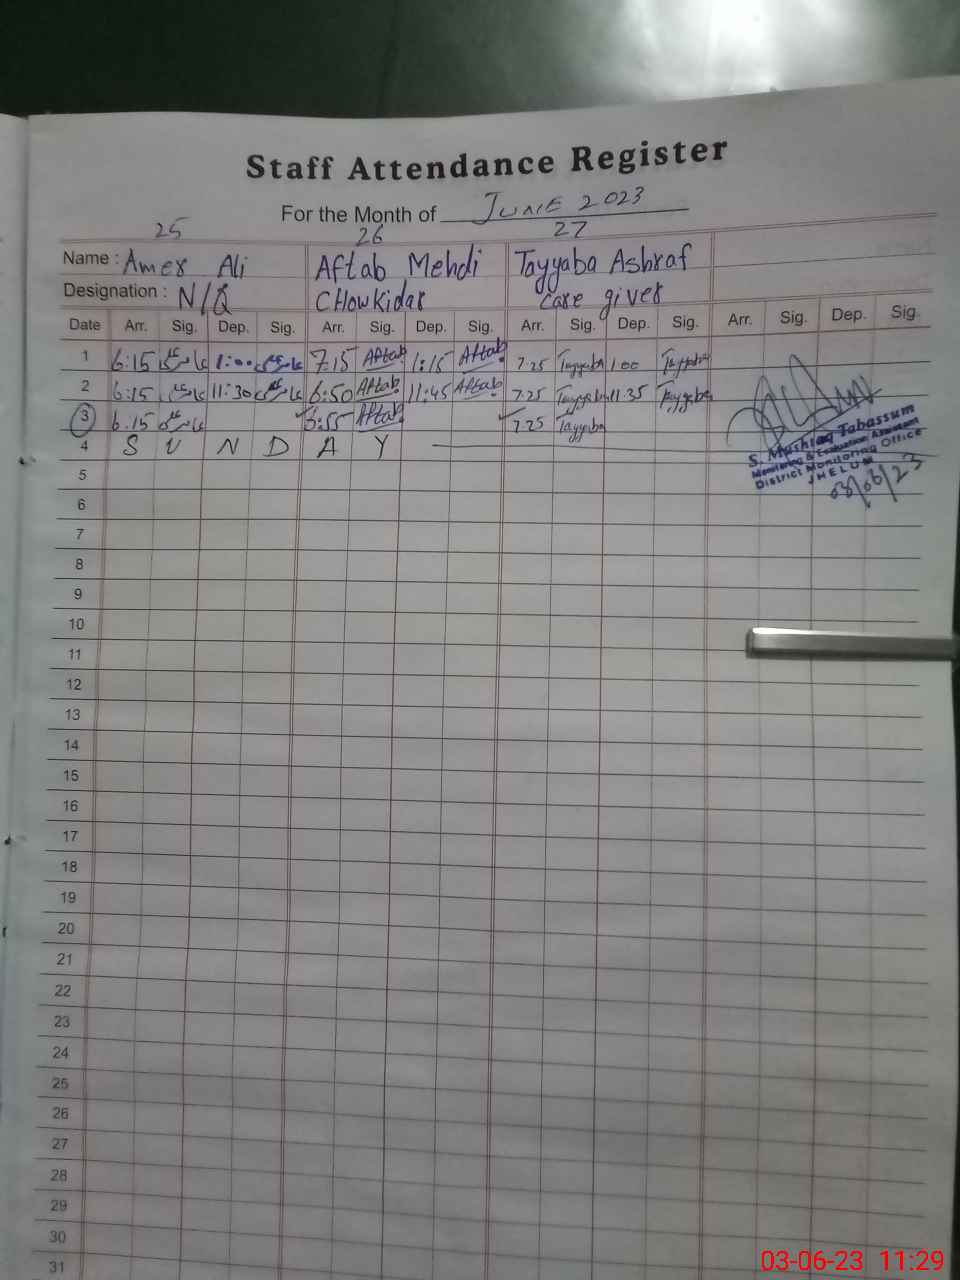 Staff Attendance Register
For the Month of JUNE 2023
25 26 27
Name : Amer Ali Aftab Mehdi Tayyaba Ashraf
Designation : N/Q CHowkidar care giver
Date Arr. Sig. Dep. Sig. Arr. Sig. Dep. Sig. Arr. Sig. Dep. Sig. Arr. Sig. Dep. Sig.
1 6:15 عامر علی 1:00 عامر علی 7:15 Aftab 1:15 Aftab 7.25 Tayyaba 1.00 Tayyaba
2 6:15 عامر علی 11:30 عامر علی 6:50 Aftab 11:45 Aftab 7.25 Tayyaba 11.35 Tayyaba
3 6:15 عامر علی 6:55 Aftab 7.25 Tayyaba
4 S U N D A Y —
S. Mushtaq Tabassum
Monitoring & Evaluation Assistant
District Monitoring Office
JHELUM
03/06/23
5
6
7
8
9
10
11
12
13
14
15
16
17
18
19
20
21
22
23
24
25
26
27
28
29
30
31
03-06-23 11:29